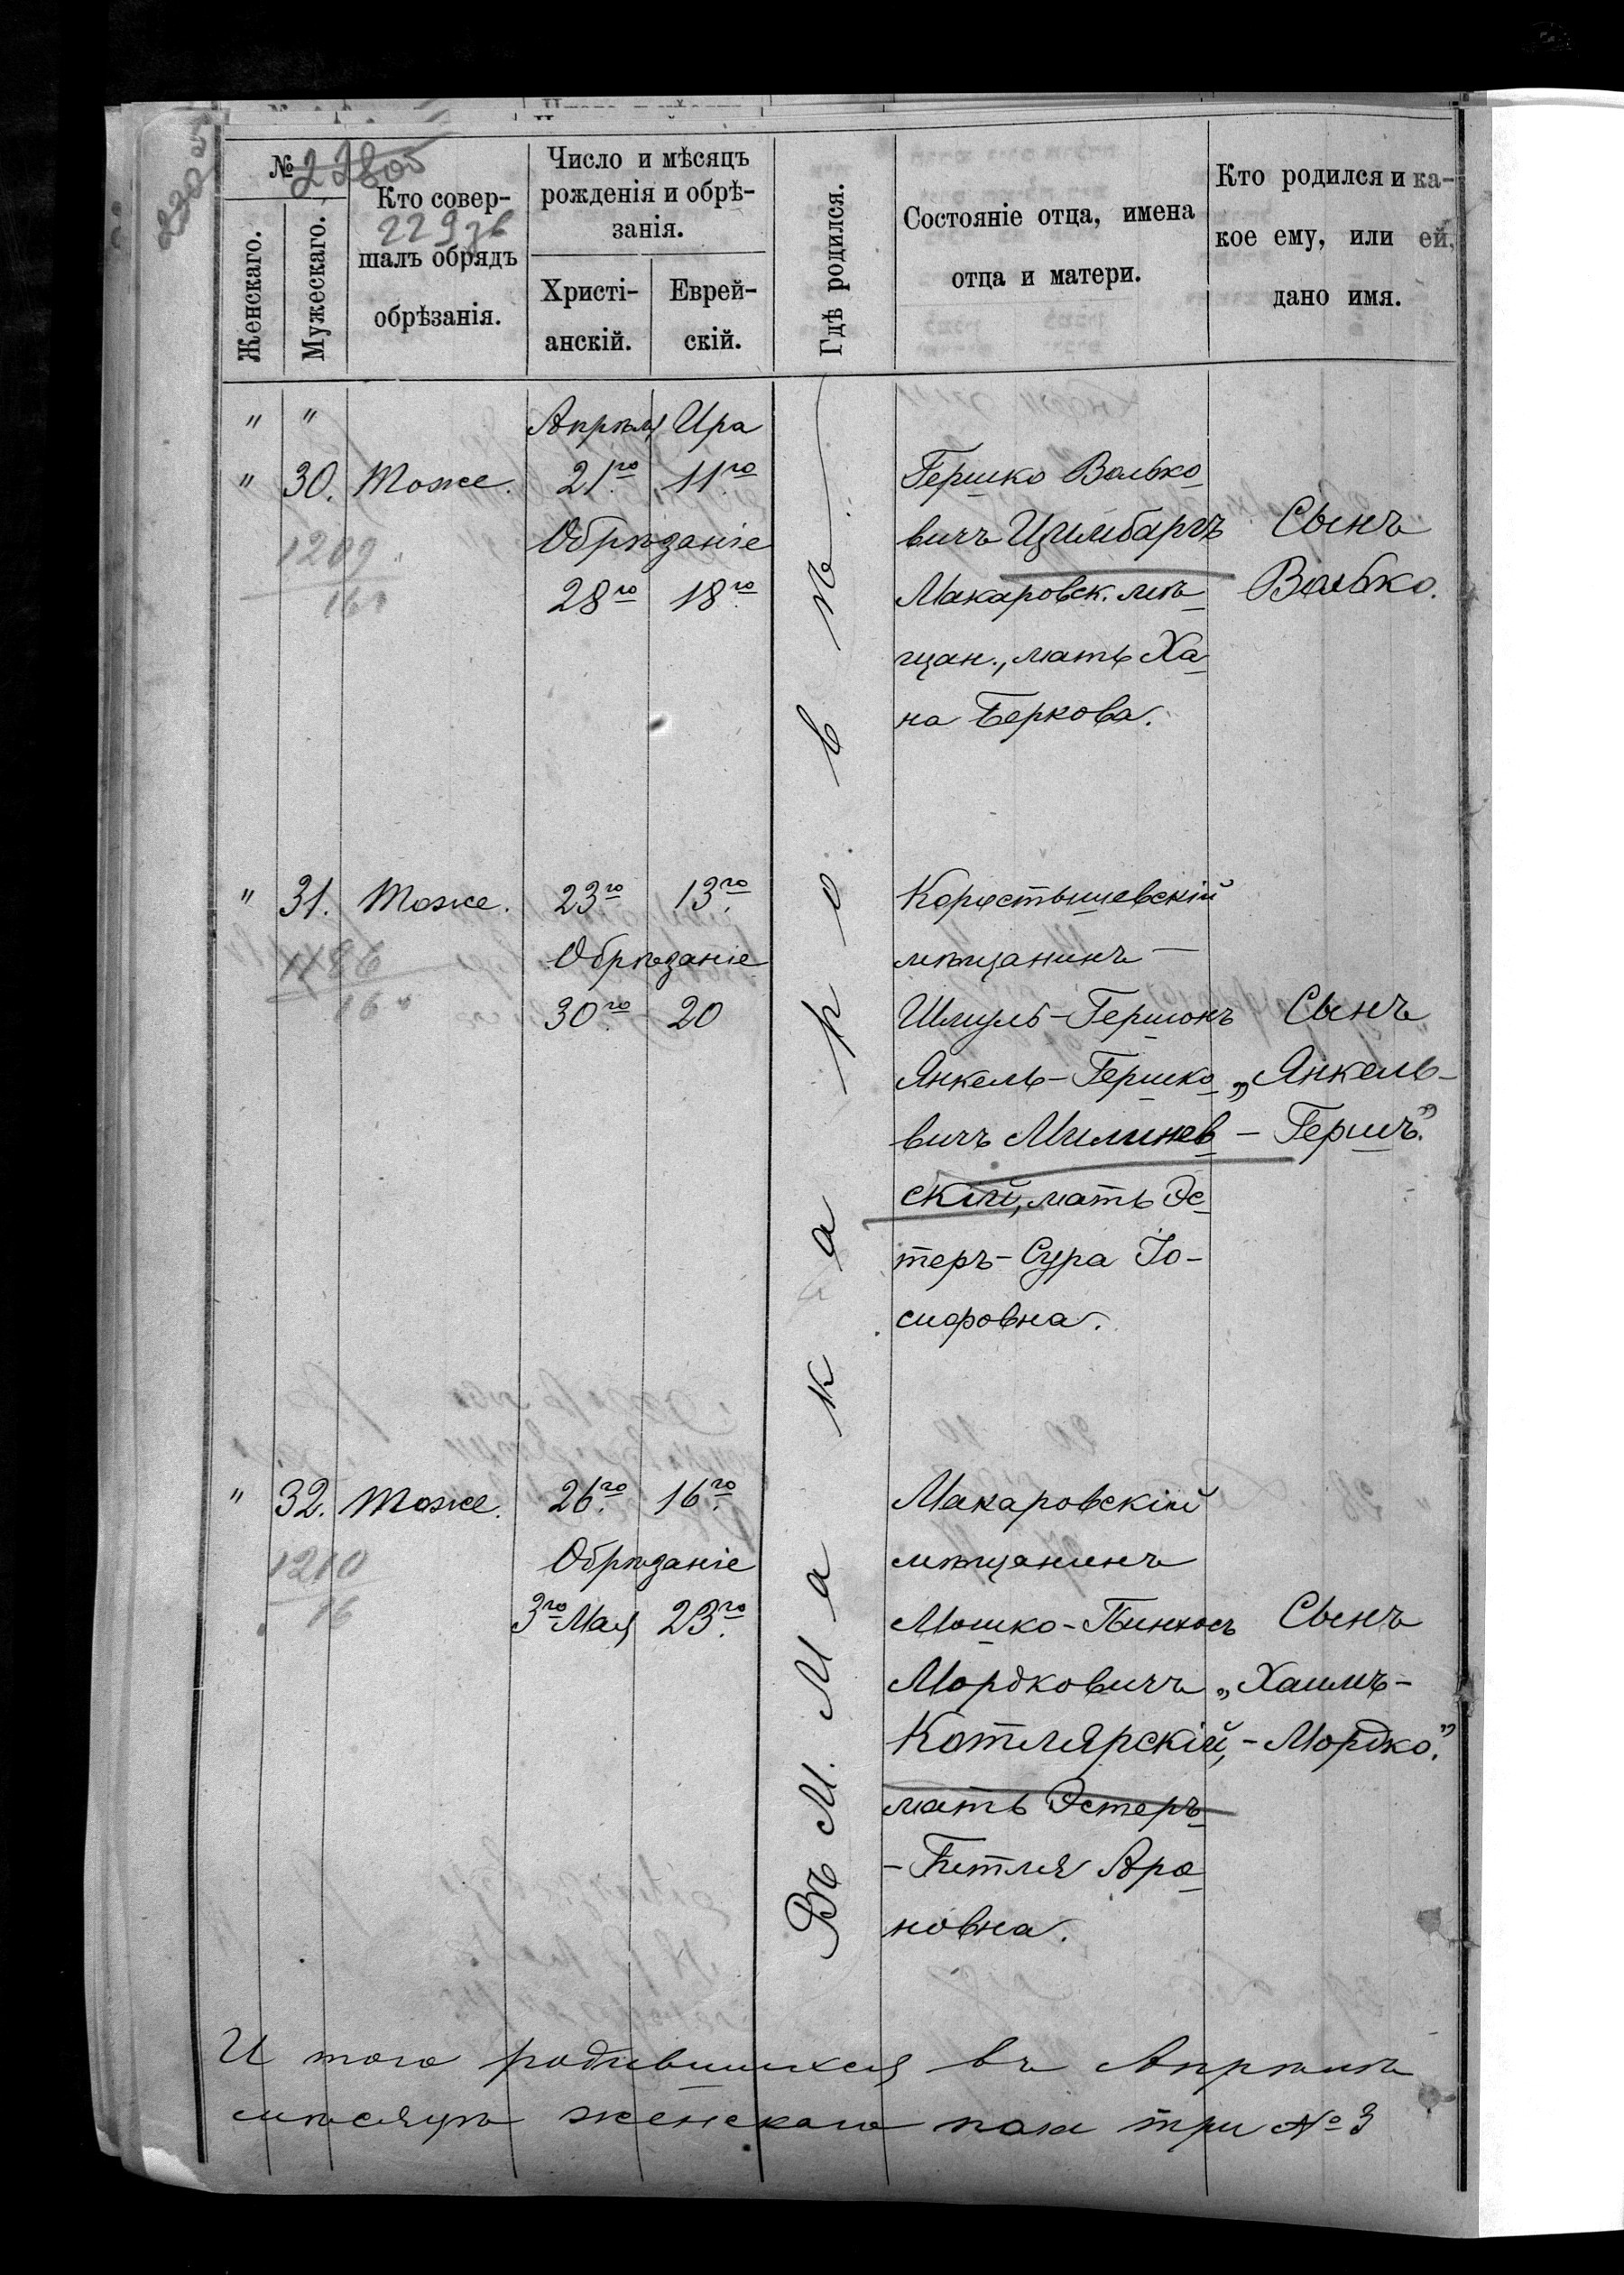 №
Женскаго.
Мужескаго.
Кто совер-
шалъ обрядъ
обрѣзанія.
Число и мѣсяцъ
рожденія и обрѣ-
занія.
Христі-
анскій.
Еврей-
скій.
Гдѣ родился.
Состояніе отца, имена
отца и матери.
Кто родился и ка-
кое ему, или ей,
дано имя.
Въ м. Макаровѣ
" " Апрѣля Ира
" 30. Тоже. 21го 11го
Обрѣзаніе
28го 18го
1209
16
Гершко Волько
вичъ Цимбаргъ
Макаровск. мѣ
щан., мать Ха
на Беркова.
Сынъ
Волько.
" 31. Тоже. 23го 13го
Обрѣзаніе
30го 20
1186
16
Коростышевскій
мѣщанинъ —
Шмуль-Гершонъ
Янкель-Гершко
вичъ Милинев
скій, мать Эс
теръ-Сура Іо-
сифовна.
Сынъ
„Янкель-
- Гершъ."
" 32. Тоже. 26го 16го
Обрѣзаніе
3го Мая 23го
1210
16
Макаровскій
мѣщанинъ
Мошко-Пинхосъ
Мордковичъ
Котлярскій,
мать Эстеръ
- Гитля Аро
новна.
Сынъ
„Хаимъ-
- Мордко."
И того родившихся въ Апрѣлѣ
мѣсяцѣ женскаго пола три № 3